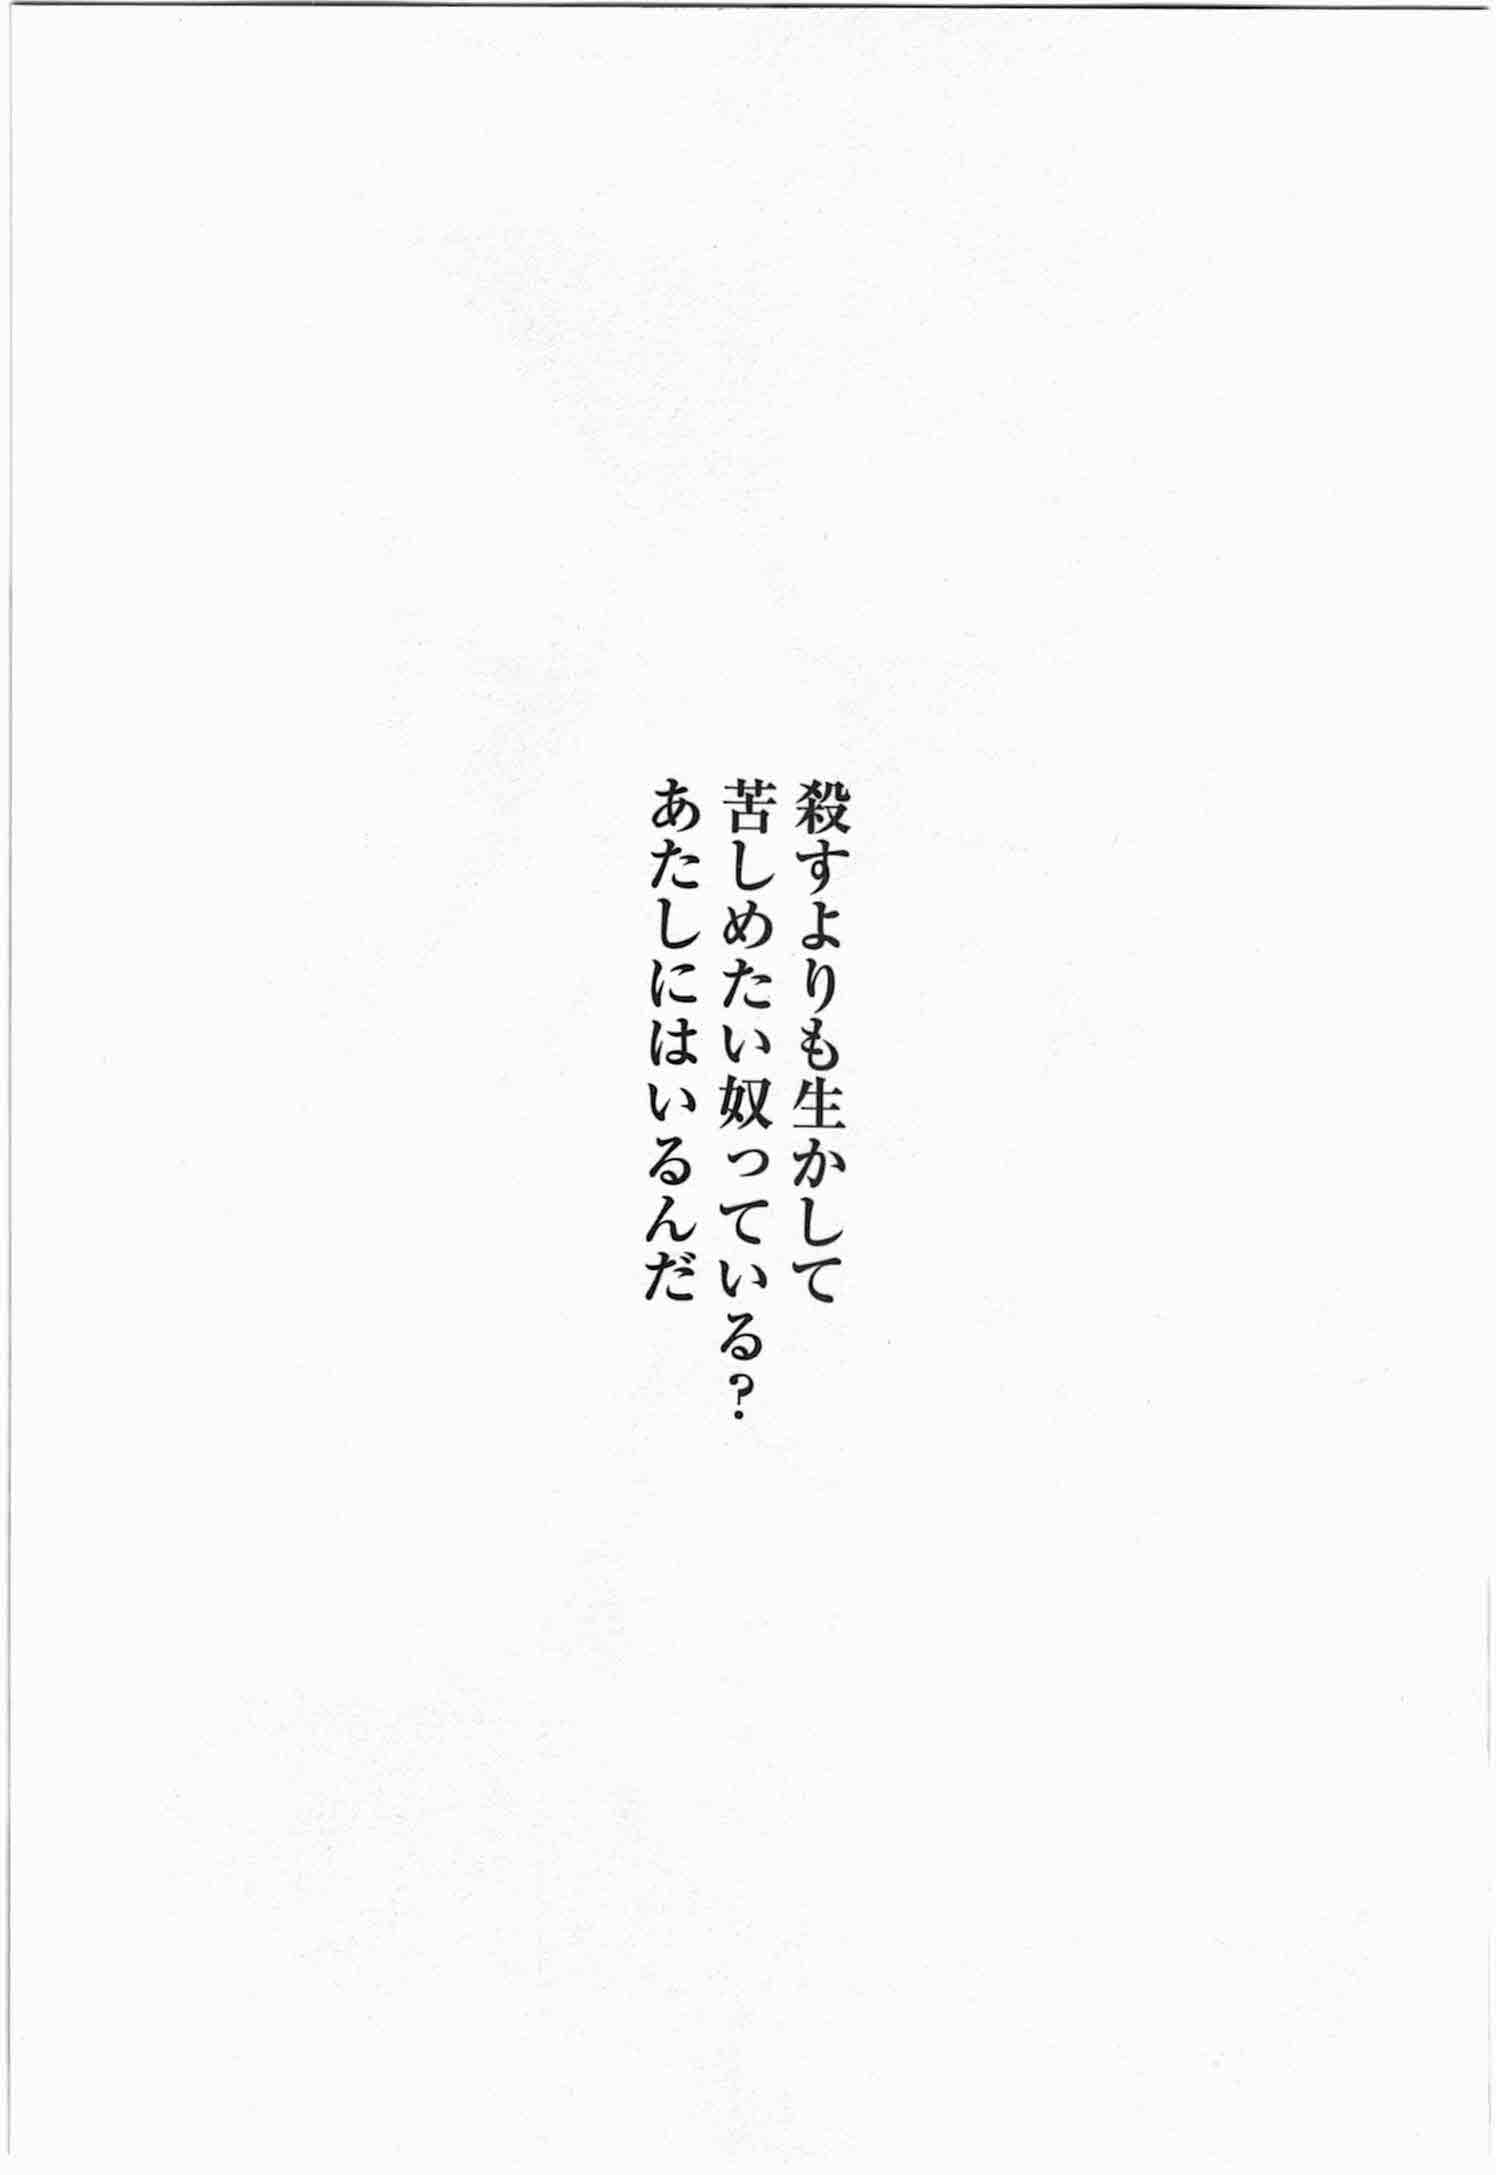 殺すよりも生かして
苦しめたい奴っている?
あたしにはいるんだ